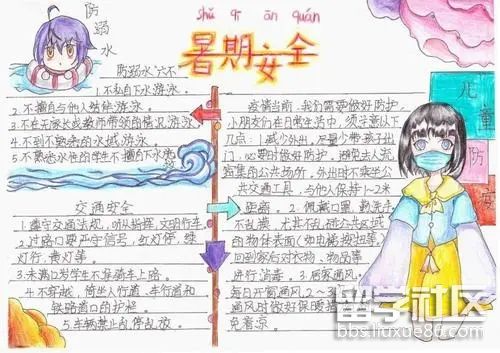 shǔ qī ān quán
暑期安全
防溺水
防溺水"六不"
1.不私自下水游泳。
2.不擅自与他人结伴游泳。
3.不在无家长或教师带领的情况游泳
4.不到不熟悉的水域游泳
5.不熟悉水性的学生不擅自下水施
交通安全
1.遵守交通法规，听从指挥，文明行车。
2.过路口要严守信号，红灯停，绿
灯行，黄灯等。
3.未满12岁学生不骑骑车上路。
4.不穿越、倚坐人行道、车行道和
铁路道口的护栏。
5.车辆禁止乱停乱放。
疫情当前，我们需要做好防护，
小朋友们在日常生活中，须注意以下
几点：1.减少外出，尽量少带孩子出
门，必要时做好防护，避免去人流
密集的公共场所，外出时不乘坐公
共交通工具，与他人保持1~2米
距离。2.佩戴口罩，勤洗手
不乱摸，尤其不乱碰公共区域
的物体表面（如电梯按钮等）
回到家后对衣物、物品等
进行消毒。3.居家通风，
每日开窗通风2~3
风时做好保暖措
免着凉。
儿童
防
安
留学社区
bbs.liuxue86.com